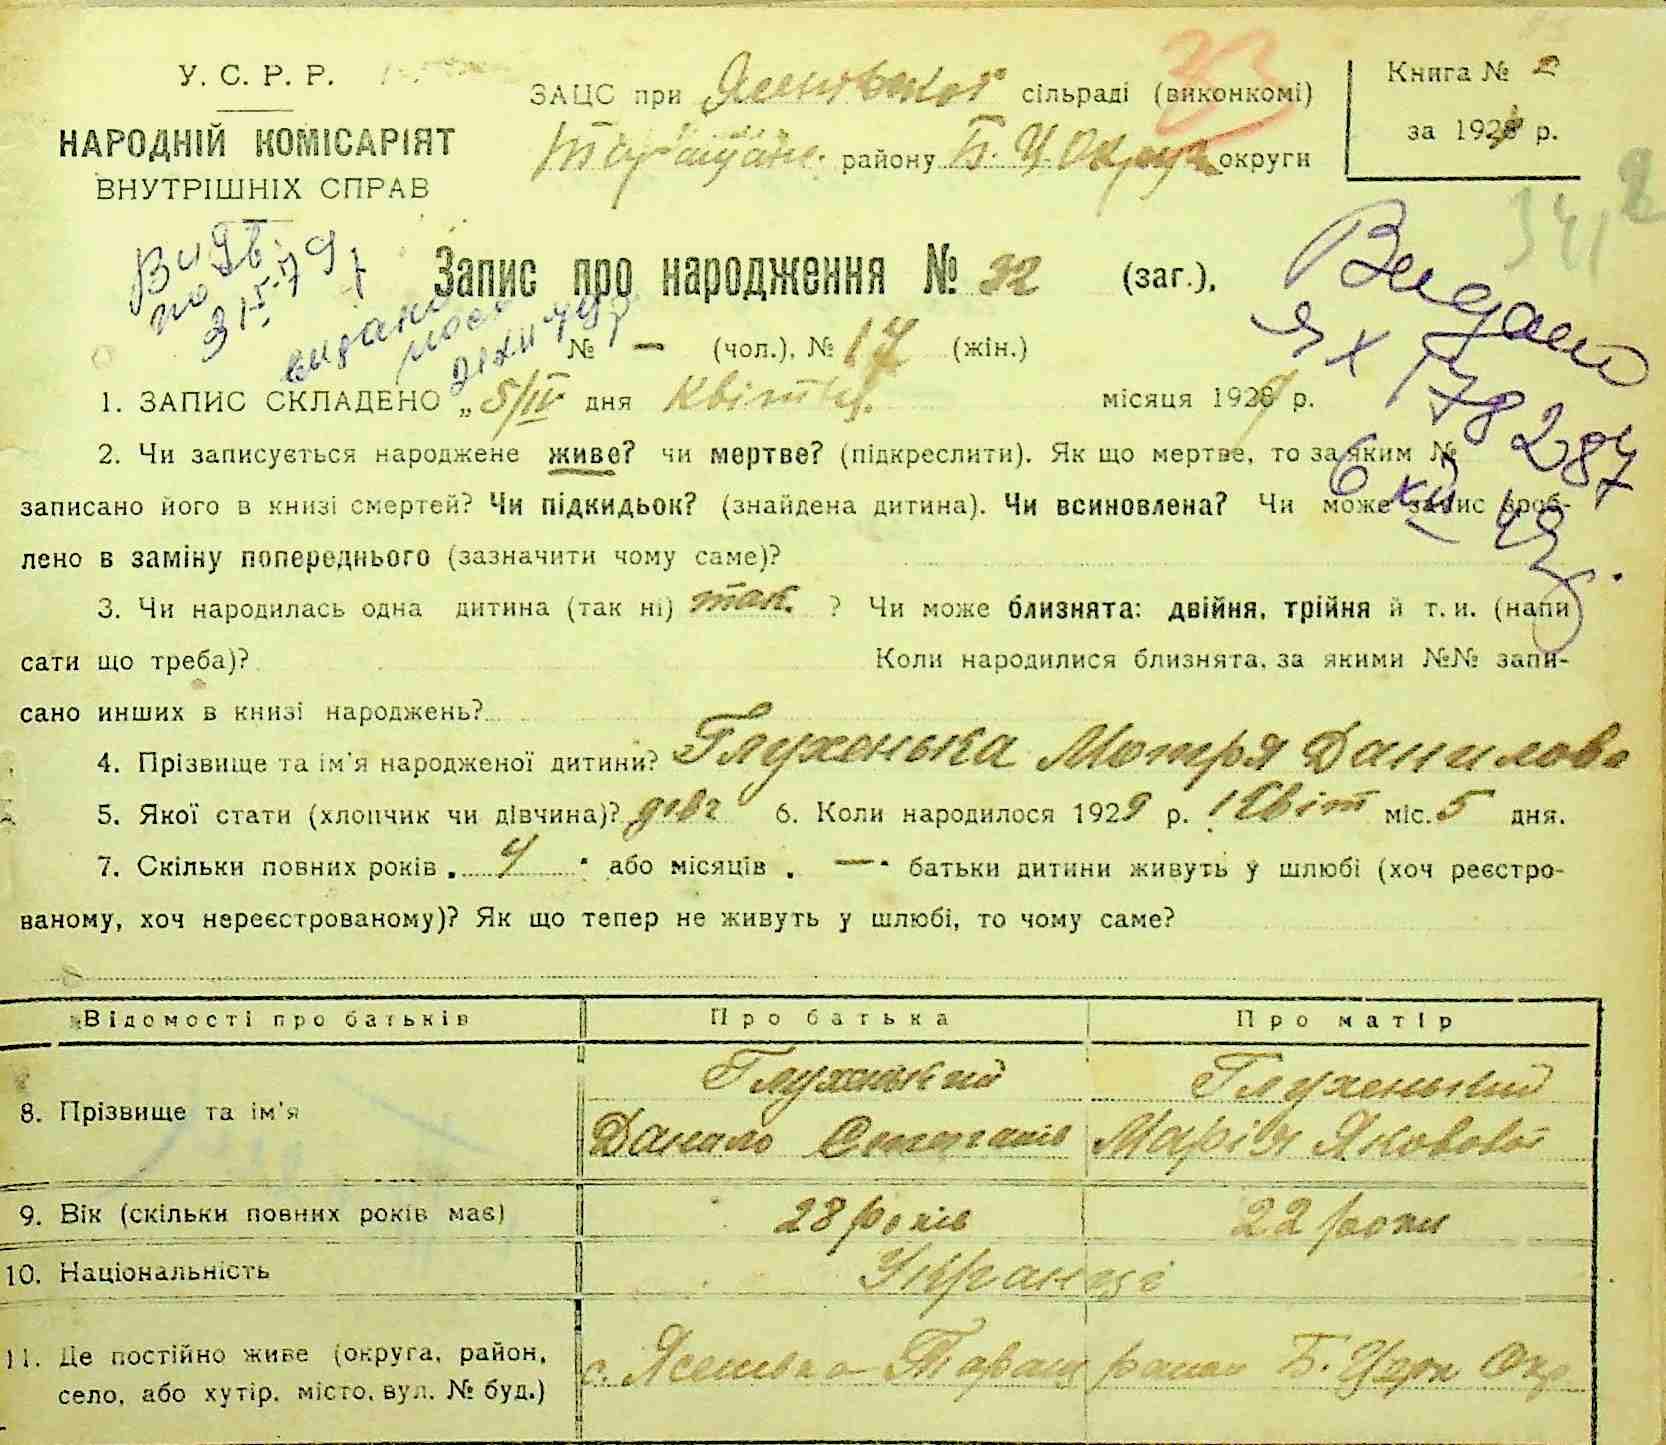 У. С. Р. Р.
НАРОДНІЙ КОМІСАРІЯТ
ВНУТРІШНІХ СПРАВ
ЗАЦС при сільраді (виконкомі)
33
Таращан. району Б. Ц. Округи округи
Книга № 2
за 1929 р.
Запис про народження № 32 (заг.),
№ — (чол.), № 17 (жін.)
Видано
ЯХ 178287
6 XII
видано
1. ЗАПИС СКЛАДЕНО „5/IV дня Квітня місяця 1929 р.
2. Чи записується народжене живе? чи мертве? (підкреслити). Як що мертве, то за яким №
записано його в книзі смертей? Чи підкидьок? (знайдена дитина). Чи всиновлена? Чи може запис зроб-
лено в заміну попереднього (зазначити чому саме)?
3. Чи народилась одна дитина (так ні) так. ? Чи може близнята: двійня, трійня й т. и. (напи
сати що треба)? Коли народилися близнята, за якими №№ запи-
сано инших в книзі народжень?
4. Прізвище та ім'я народженої дитини? Глухенька Мотря Данилова
5. Якої стати (хлопчик чи дівчина)? дівч 6. Коли народилося 1929 р. Квіт міс. 5 дня.
7. Скільки повних років 4 або місяців — батьки дитини живуть у шлюбі (хоч реєстро-
ваному, хоч нереєстрованому)? Як що тепер не живуть у шлюбі, то чому саме?
Відомості про батьків Про батька Про матір
8. Прізвище та ім'я
Глухенький Глухенький
Данило Степанів Марія Яковова
9. Вік (скільки повних років має) 28 років 22 роки
10. Національність Українці
11. Де постійно живе (округа, район,
село, або хутір, місто, вул. № буд.)
с. Ясенівка Таращ район Б. Церк Окр